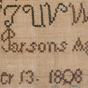 T U V W
Parsons Ag
er 13. 1808